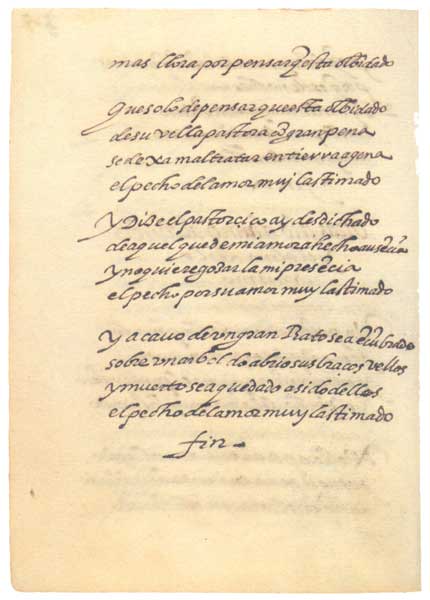 mas llora por pensar q̃ esta olbidado
que solo de pensar que esta olbidado
de su vella pastora cõ gran pena
se dexa maltratar en tierra agena
el pecho del amor muy lastimado
y Dice el pastorçico ay desdichado
de aquel que de mi amor a hecho ausẽcia
y no quiere goçar la mi presẽcia
el pecho por su amor muy lastimado
y a cavo de un gran Rato se a ẽcũbrado
sobre un arbol do abrio sus braços vellos
y muerto se a quedado asido dellos
el pecho del amor muy lastimado
fin